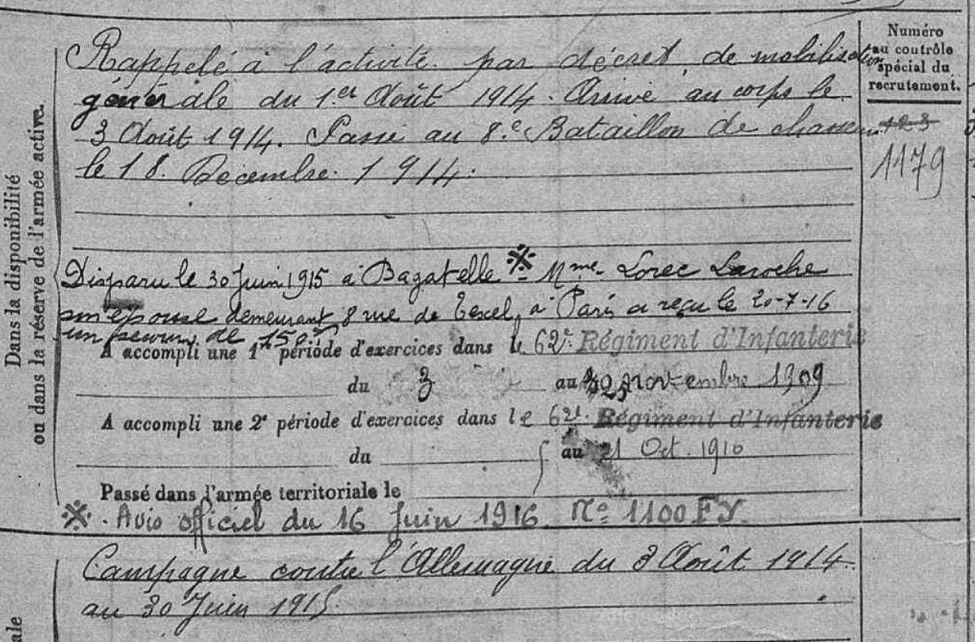 Numéro
au contrôle
spécial du
recrutement.
123
1179
Dans la disponibilité
ou dans la réserve de l'armée active.
Rappelé à l'activité par décret de mobilisation
générale du 1.er Août 1914. Arrivé au corps le
3 Août 1914. Passé au 8.e Bataillon de chasseurs
le 18 Décembre 1914.
Disparu le 30 Juin 1915 à Bagatelle ※ - Mme Lorec Laroche
son épouse demeurant 8 rue de Texel, à Paris a reçu le 20-7-16
un secours de 150 f
A accompli une 1re période d'exercices dans le 62e Régiment d'Infanterie
du 3 au 25 novembre 1909
A accompli une 2e période d'exercices dans le 62e Régiment d'Infanterie
du au 21 Oct. 1910
Passé dans l'armée territoriale le
※ - Avis officiel du 16 Juin 1916 No 1100 FY.
Campagne contre l'Allemagne du 3 Août 1914
au 30 Juin 1915.